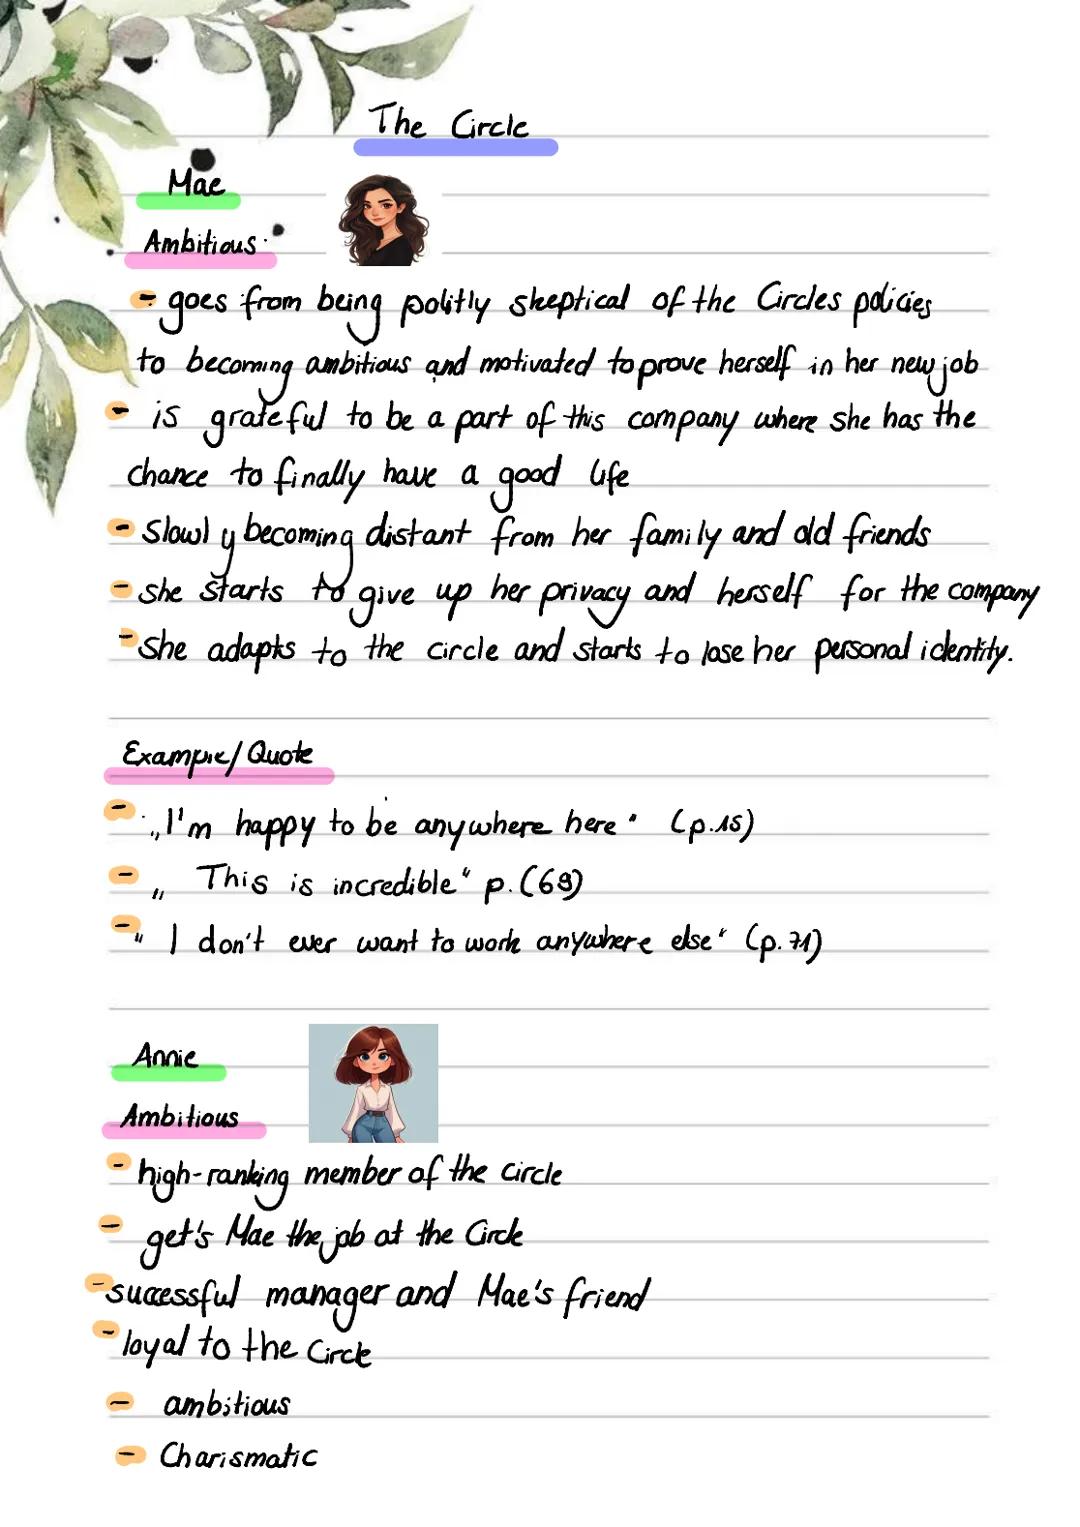 The Circle
Mae
Ambitious
- goes from being politly skeptical of the Circles policies
to becoming ambitious and motivated to prove herself in her new job
- is grateful to be a part of this company where she has the
chance to finally have a good life
- Slowly becoming distant from her family and old friends
- she starts to give up her privacy and herself for the company
- she adapts to the circle and starts to lose her personal identity.
Example/Quote
- „I'm happy to be anywhere here" (p.15)
- „This is incredible" p.(69)
- "I don't ever want to work anywhere else" (p.71)
Annie
Ambitious
- high-ranking member of the circle
- get's Mae the job at the Circle
- successful manager and Mae's friend
- loyal to the Circle
- ambitious
- Charismatic